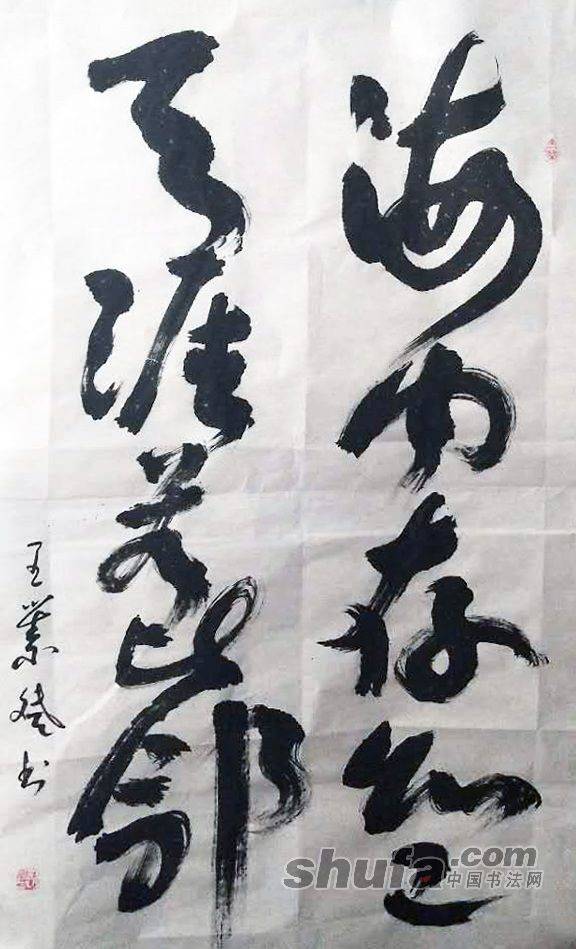 海内存知己
天涯若比邻
王業书
shufa.com
中国书法网